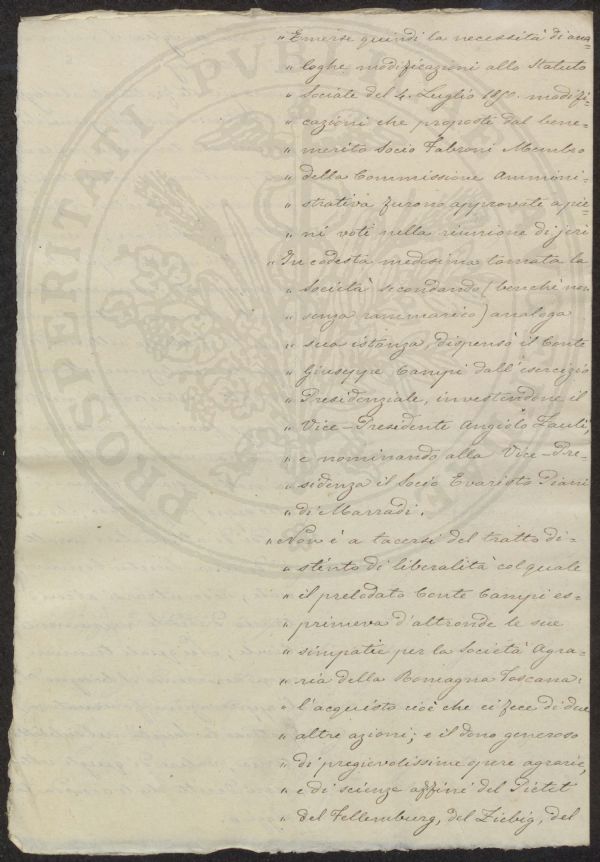 " Emerse quindi la necessità di ana=
" loghe modificazioni allo Statuto
" Sociale del 4. Luglio 1850. modifi=
" cazioni che proposte dal bene=
" merito Socio Fabroni Membro
" della Commissione Ammini=
" strativa furono approvate a pie=
" ni voti nella riunione di jeri
" In codesta medesima tornata la
" Società secondando (benchè non
" senza rammarico) analoga
" sua istanza, dispensò il Conte
" Giuseppe Campi dall'esercizio
" Presidenziale, investendone il
" Vice-Presidente Angiolo Fauli,
" e nominando alla Vice-Pre=
" sidenza il Socio Evaristo Piani
" di Marradi.
" Non è a tacersi del tratto di=
" stinto di liberalità col quale
" il prelodato Conte Campi es=
" primeva d'altronde le sue
" simpatie per la Società Agra=
" ria della Romagna Toscana:
" l'acquisto cioè che ei fece di due
" altre azioni; e il dono generoso
" di pregievolissime opere agrarie,
" e di scienze affini del Pictet
" del Fellemburg, del Liebig, del
PROSPERITATI PVBLI